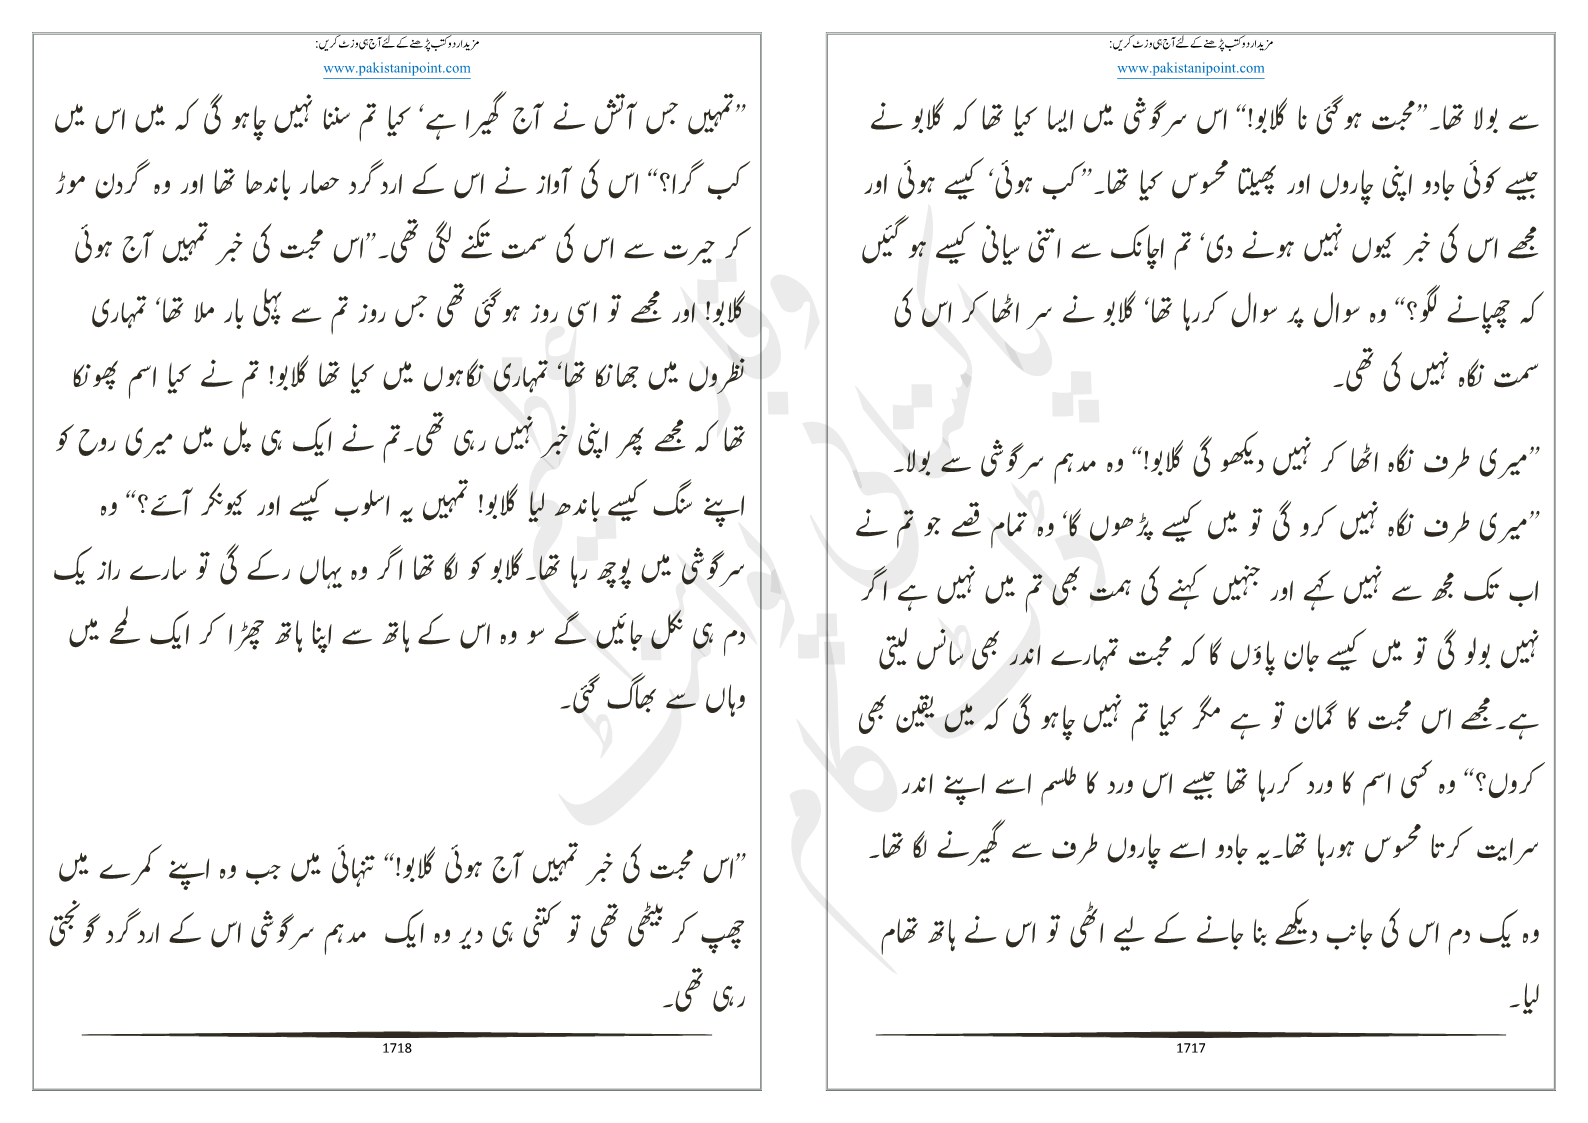 مزید اردو کتب پڑھنے کے لئے آج ہی وزٹ کریں:
www.pakistanipoint.com
سے بولا تھا۔”محبت ہوگئی نا گلابو!“ اس سرگوشی میں ایسا کیا تھا کہ گلابو نے
جیسے کوئی جادو اپنی چاروں اور پھیلتا محسوس کیا تھا۔”کب ہوئی‘ کیسے ہوئی اور
مجھے اس کی خبر کیوں نہیں ہونے دی‘ تم اچانک سے اتنی سیانی کیسے ہو گئیں
کہ چھپانے لگو؟“ وہ سوال پر سوال کررہا تھا‘ گلابو نے سر اٹھا کر اس کی
سمت نگاہ نہیں کی تھی۔
”میری طرف نگاہ اٹھا کر نہیں دیکھو گی گلابو!“ وہ مدہم سرگوشی سے بولا۔
”میری طرف نگاہ نہیں کرو گی تو میں کیسے پڑھوں گا‘ وہ تمام قصے جو تم نے
اب تک مجھ سے نہیں کہے اور جنہیں کہنے کی ہمت بھی تم میں نہیں ہے اگر
نہیں بولو گی تو میں کیسے جان پاؤں گا کہ محبت تمہارے اندر بھی سانس لیتی
ہے۔مجھے اس محبت کا گمان تو ہے مگر کیا تم نہیں چاہو گی کہ میں یقین بھی
کروں؟“ وہ کسی اسم کا ورد کررہا تھا جیسے اس ورد کا طلسم اسے اپنے اندر
سرایت کرتا محسوس ہورہا تھا۔یہ جادو اسے چاروں طرف سے گھیرنے لگا تھا۔
وہ یک دم اس کی جانب دیکھے بنا جانے کے لیے اٹھی تو اس نے ہاتھ تھام
لیا۔
1717
مزید اردو کتب پڑھنے کے لئے آج ہی وزٹ کریں:
www.pakistanipoint.com
”تمہیں جس آتش نے آج گھیرا ہے‘ کیا تم سننا نہیں چاہو گی کہ میں اس میں
کب گرا؟“ اس کی آواز نے اس کے ارد گرد حصار باندھا تھا اور وہ گردن موڑ
کر حیرت سے اس کی سمت تکنے لگی تھی۔”اس محبت کی خبر تمہیں آج ہوئی
گلابو! اور مجھے تو اسی روز ہوگئی تھی جس روز تم سے پہلی بار ملا تھا‘ تمہاری
نظروں میں جھانکا تھا‘ تمہاری نگاہوں میں کیا تھا گلابو! تم نے کیا اسم پھونکا
تھا کہ مجھے پھر اپنی خبر نہیں رہی تھی۔تم نے ایک ہی پل میں میری روح کو
اپنے سنگ کیسے باندھ لیا گلابو! تمہیں یہ اسلوب کیسے اور کیونکر آئے؟“ وہ
سرگوشی میں پوچھ رہا تھا۔گلابو کو لگا تھا اگر وہ یہاں رکے گی تو سارے راز یک
دم ہی نکل جائیں گے سو وہ اس کے ہاتھ سے اپنا ہاتھ چھڑا کر ایک لمحے میں
وہاں سے بھاگ گئی۔
”اس محبت کی خبر تمہیں آج ہوئی گلابو!“ تنہائی میں جب وہ اپنے کمرے میں
چھپ کر بیٹھی تھی تو کتنی ہی دیر وہ ایک مدہم سرگوشی اس کے ارد گرد گونجتی
رہی تھی۔
1718